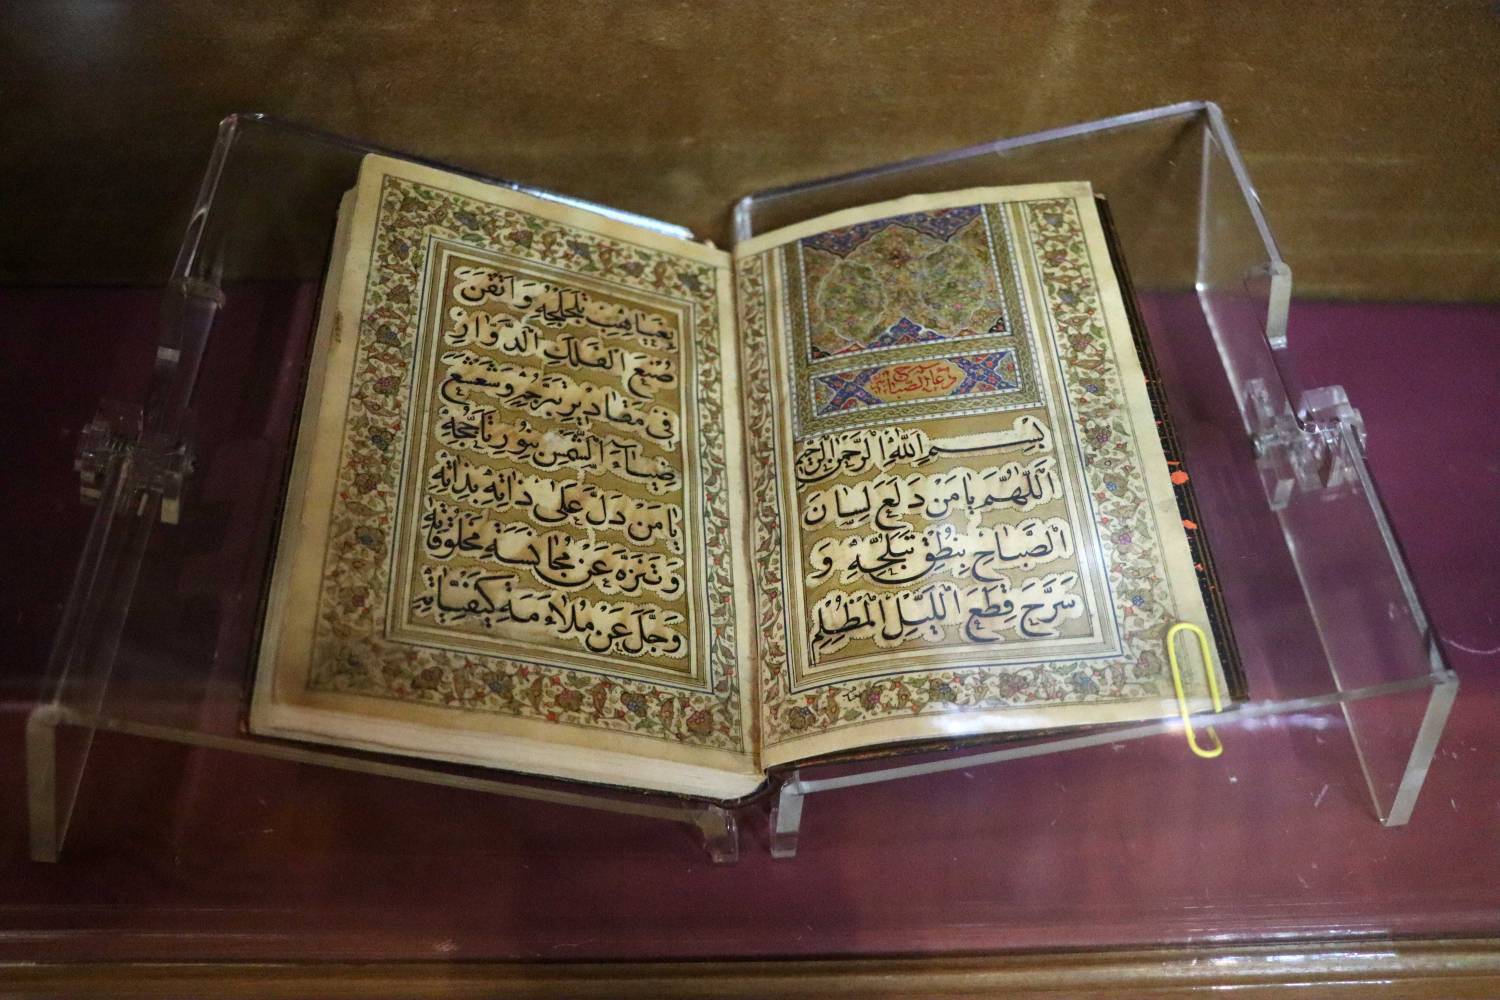 دعاء الصباح
بِسْمِ اللّٰهِ الرَّحْمٰنِ الرَّحِيْمِ
اَللّٰهُمَّ يا مَنْ دَلَعَ لِسانَ
الصَّباحِ بِنُطْقِ تَبَلُّجِهٖ وَ
سَرَّحَ قِطَعَ الَّليْلِ الْمُظْلِمِ
بِغَياهِبِ تَلَجْلُجِهٖ وَاَتْقَنَ
صُنْعَ الْفَلَكِ الدَّوّارِ
فى مَقاديرِ تَبَرُّجِهٖ وَشَعْشَعَ
ضِياءَ الشَّمْسِ بِنُورِ تَاَجُّجِهٖ
يا مَنْ دَلَّ عَلٰى ذاتِهٖ بِذاتِهٖ
وَتَنَزَّهَ عَنْ مُجانَسَةِ مَخْلُوقاتِهٖ
وَجَلَّ عَنْ مُلاءَمَةِ كَيْفِيّاتِهٖ